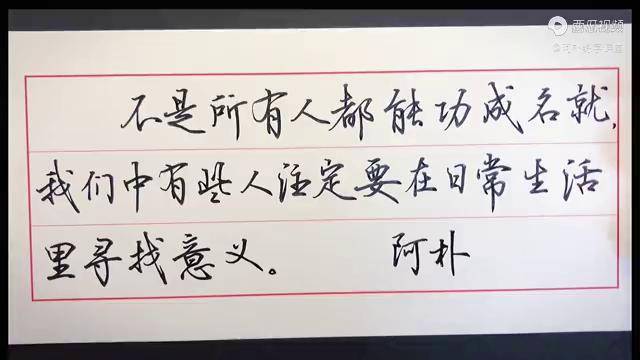 西瓜视频
不是所有人都能功成名就,
我们中有些人注定要在日常生活
里寻找意义。 阿朴